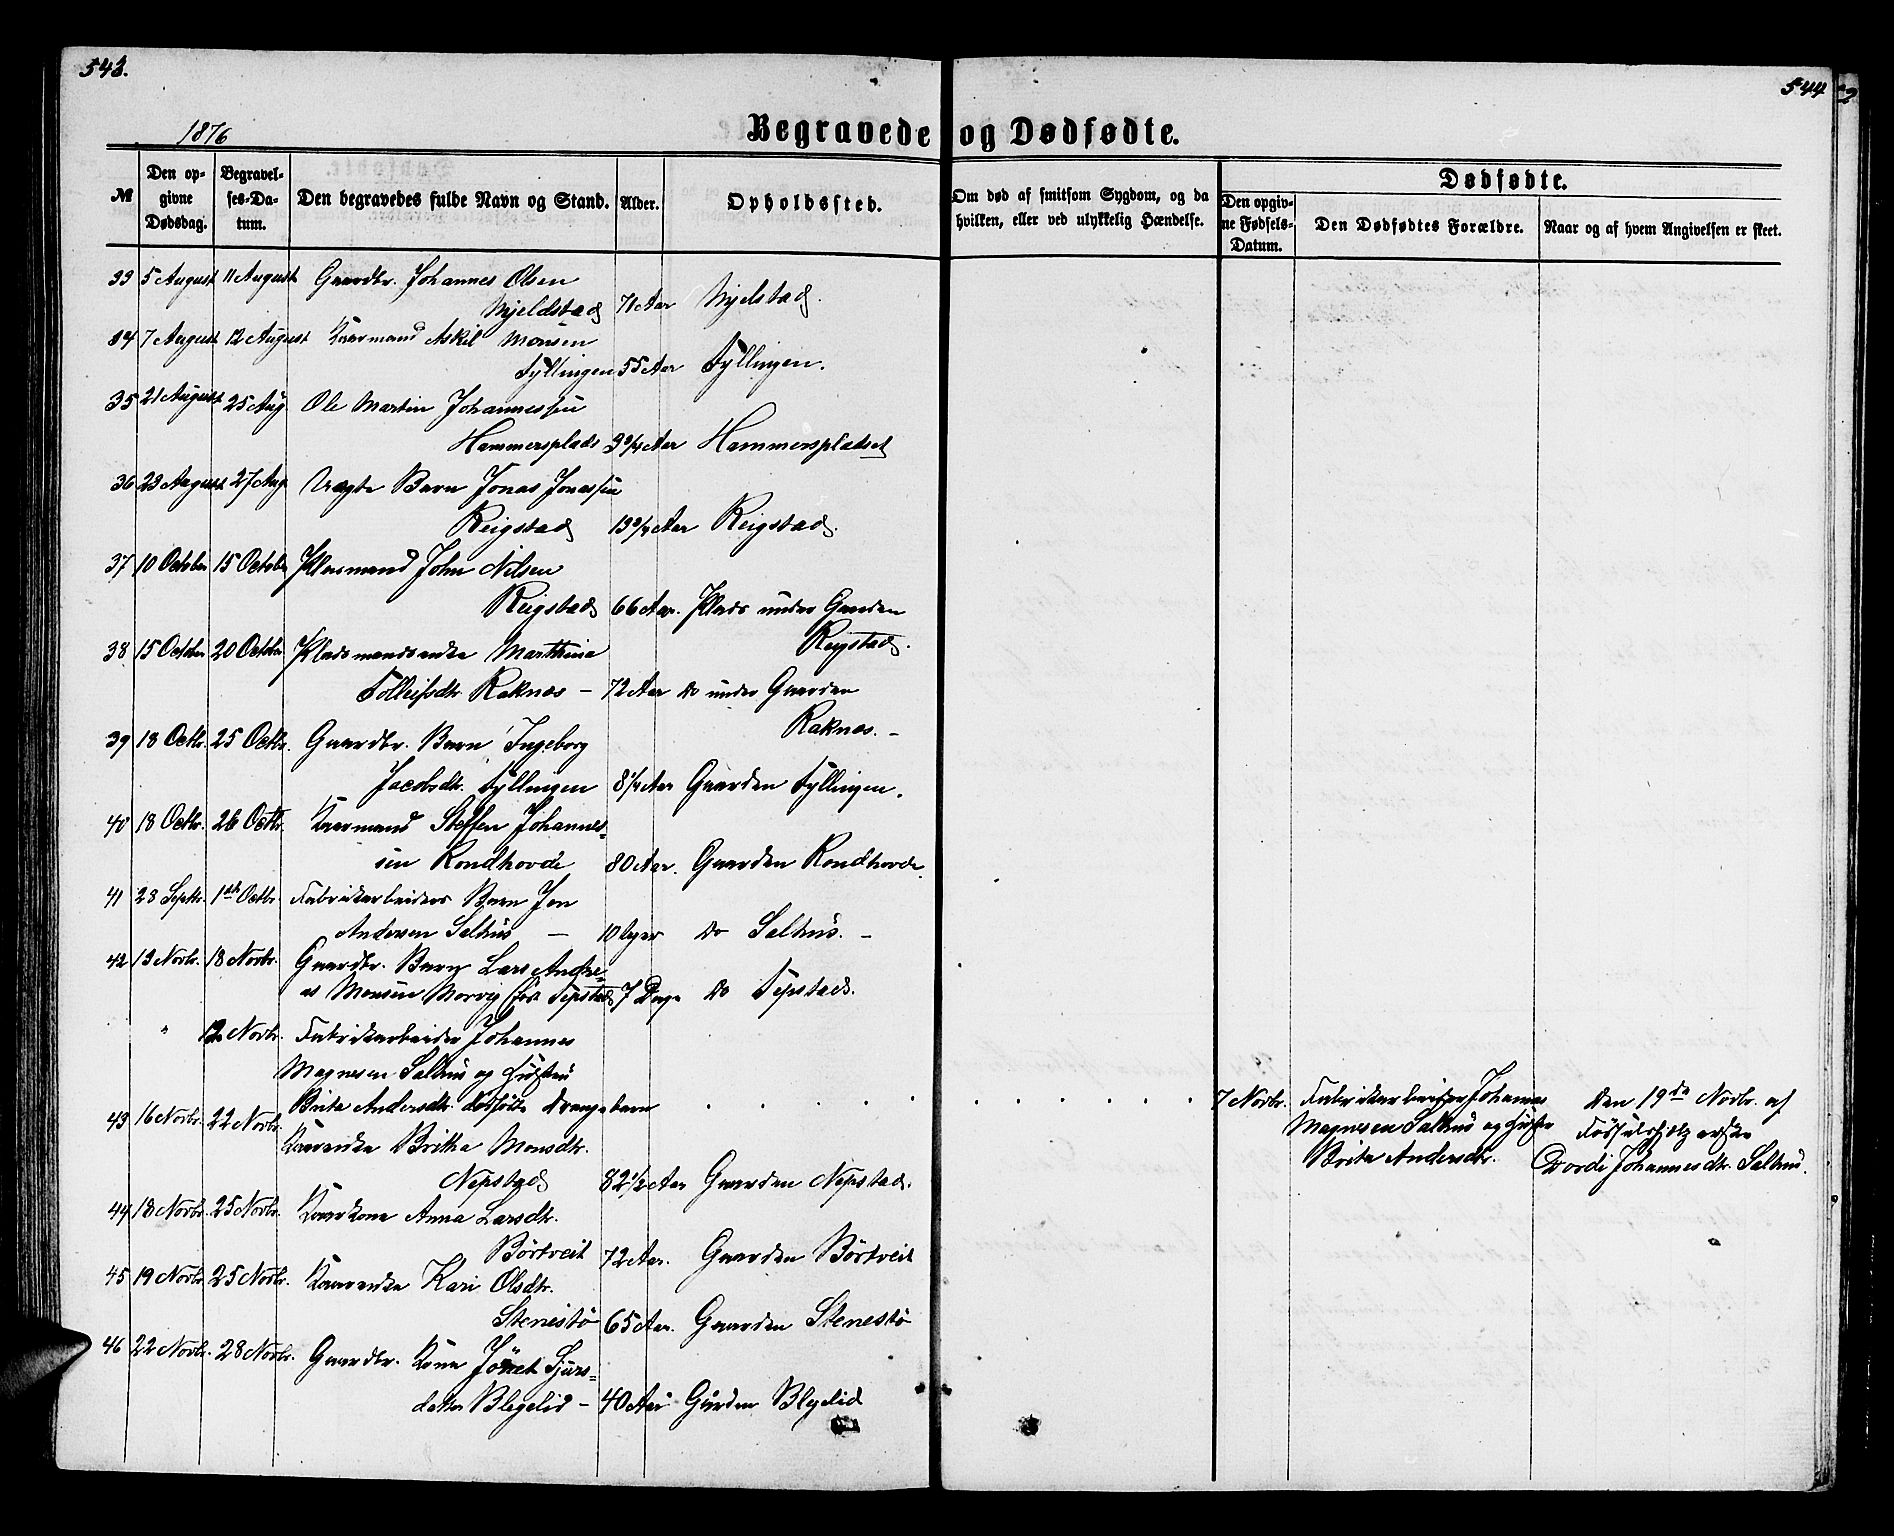 543.
544
1876
Begravede og Dødfødte.
№
Den op-
givne
Dødsdag.
Begravel-
ses-Da-
tum.
Den begravedes fulde Navn og Stand.
Alder.
Opholdssted.
Om død af smitsom Sygdom, og da
hvilken, eller ved ulykkelig Hændelse.
Dødfødte.
Den opgiv-
ne Fødsels-
Datum.
Den Dødfødtes Forældre.
Naar og af hvem Angivelsen er skeet.
33 5 August 11 August Gaardbr. Johannes Olsen
Mjeldstad 71 Aar Mjelstad.
34 7 August 12 August Kaarmand Askil Monsen
Fyllingen 55 Aar Fyllingen.
35 21 August 25 Aug. Ole Martin Johannessen
Hammersplads 3 3/4 Aar Hammerspladset
36 23 August 27 Aug. Uægte Barn Jonas Jonassen
Reigstad 13 3/4 Aar Reigstad.
37 10 October 15 October Pladsmand John Nilsen
Reigstad 66 Aar. Plads under Gaarden
Reigstad.
38 15 October 20 October Pladsmandsenke Marthina
Tolleifsdtr. Raknes – 72 Aar do under Gaarden
Raknes. –
39 18 Octbr. 25 Octbr. Gaardbr. Barn Ingeborg
Jacobsdtr. Fyllingen 8 1/4 Aar Gaarden Fyllingen.
40 18 Octbr. 26 Octbr. Kaarmand Steffen Johannes-
sen Rondhovde 80 Aar. Gaarden Rondhovde.
41 28 Septbr. 1ste Octbr. Fabrikarbeiders Barn Jon
Andersen Salhus – 10 Uger do Salhus. –
42 13 Novbr. 18 Novbr. Gaardbr. Barn Lars Andre-
as Monsen Morvig 7 Dage do
" 12 Novbr. Fabrikarbeider Johannes
Magnesen Salhus og Hustru
Brita Andersdtr. dødfødte Drengebarn . . . . . . . . . . 7 Novbr. Fabrikarbeider Johannes
Magnesen Salhus og Hustru
Brita Andersdtr.
Den 19de Novbr. af
Fødselshjelperske
Dordi Johannesdtr. Salhus.
43 16 Novbr. 22 Novbr.
Kaarenke Britha Monsdtr.
Nepstad 82 1/2 Aar Gaarden Nepstad.
44 18 Novbr. 25 Novbr. Kaarkone Anna Larsdtr.
Börtveit 72 Aar. Gaarden Börtveit
45 19 Novbr. 25 Novbr. Kaarenke Kari Olsdtr.
Stenestö 65 Aar. Gaarden Stenestö
46 22 Novbr. 28 Novbr. Gaardbr. Kone Jöret Sjurs-
datter Blegelid – 40 Aar Garden Blegelid